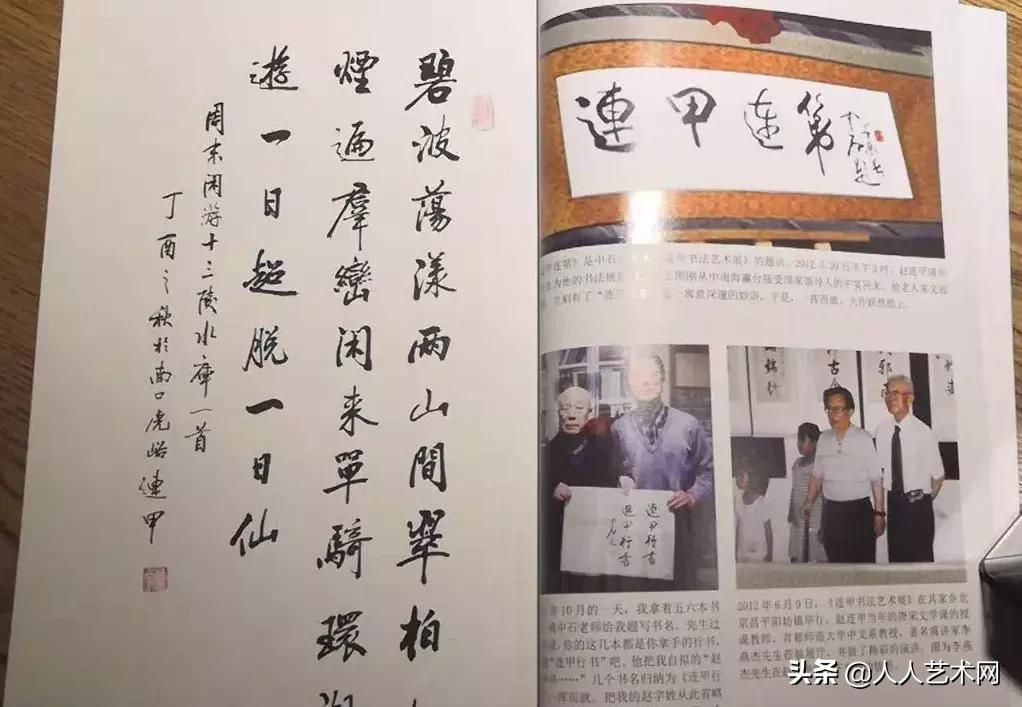 碧波蕩漾两山間翠柏
煙遍羣巒闲来單騎環
遊一日超脱一日仙
周末闲游十三陵水库一首
丁酉之秋於南口虎峪連甲
連甲连第
中石题
连甲连第》是中石 连甲书法艺术展》的题词。2012.5.20日下午3时，赵连甲请中
为他的书法展 刚刚从中南海瀛台接受国家领导人的午宴归来，他老人家文思
立刻有了“连甲 寓意深邃的妙语，于是，一挥而就，大作跃然纸上。
連甲行書
連甲行書
年10月的一天，我拿着五六本书
请中石老师给我题写书名。先生过
说，你的这几本都是你拿手的行书，
“连甲行书”吧。他把我自拟的“赵
……”几个书名归纳为《连甲行
一挥而就。把我的赵字姓从此省略
2012年6月9日，《连甲书法艺术展》在其家乡北
京昌平阳坊镇举行。赵连甲当年的唐宋文学课的授
课教师、首都师范大学中文系教授、著名演讲家李
燕杰先生莅临展厅，并做了精彩的演讲。图为李燕
杰先生在
头条 @人人艺术网